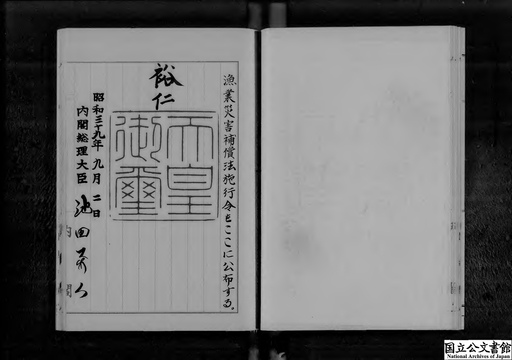 漁業災害補償法施行令をここに公布する。
裕仁
天皇御璽
昭和三十九年九月二日
内閣総理大臣 池田勇人
内閣
国立公文書館
National Archives of Japan